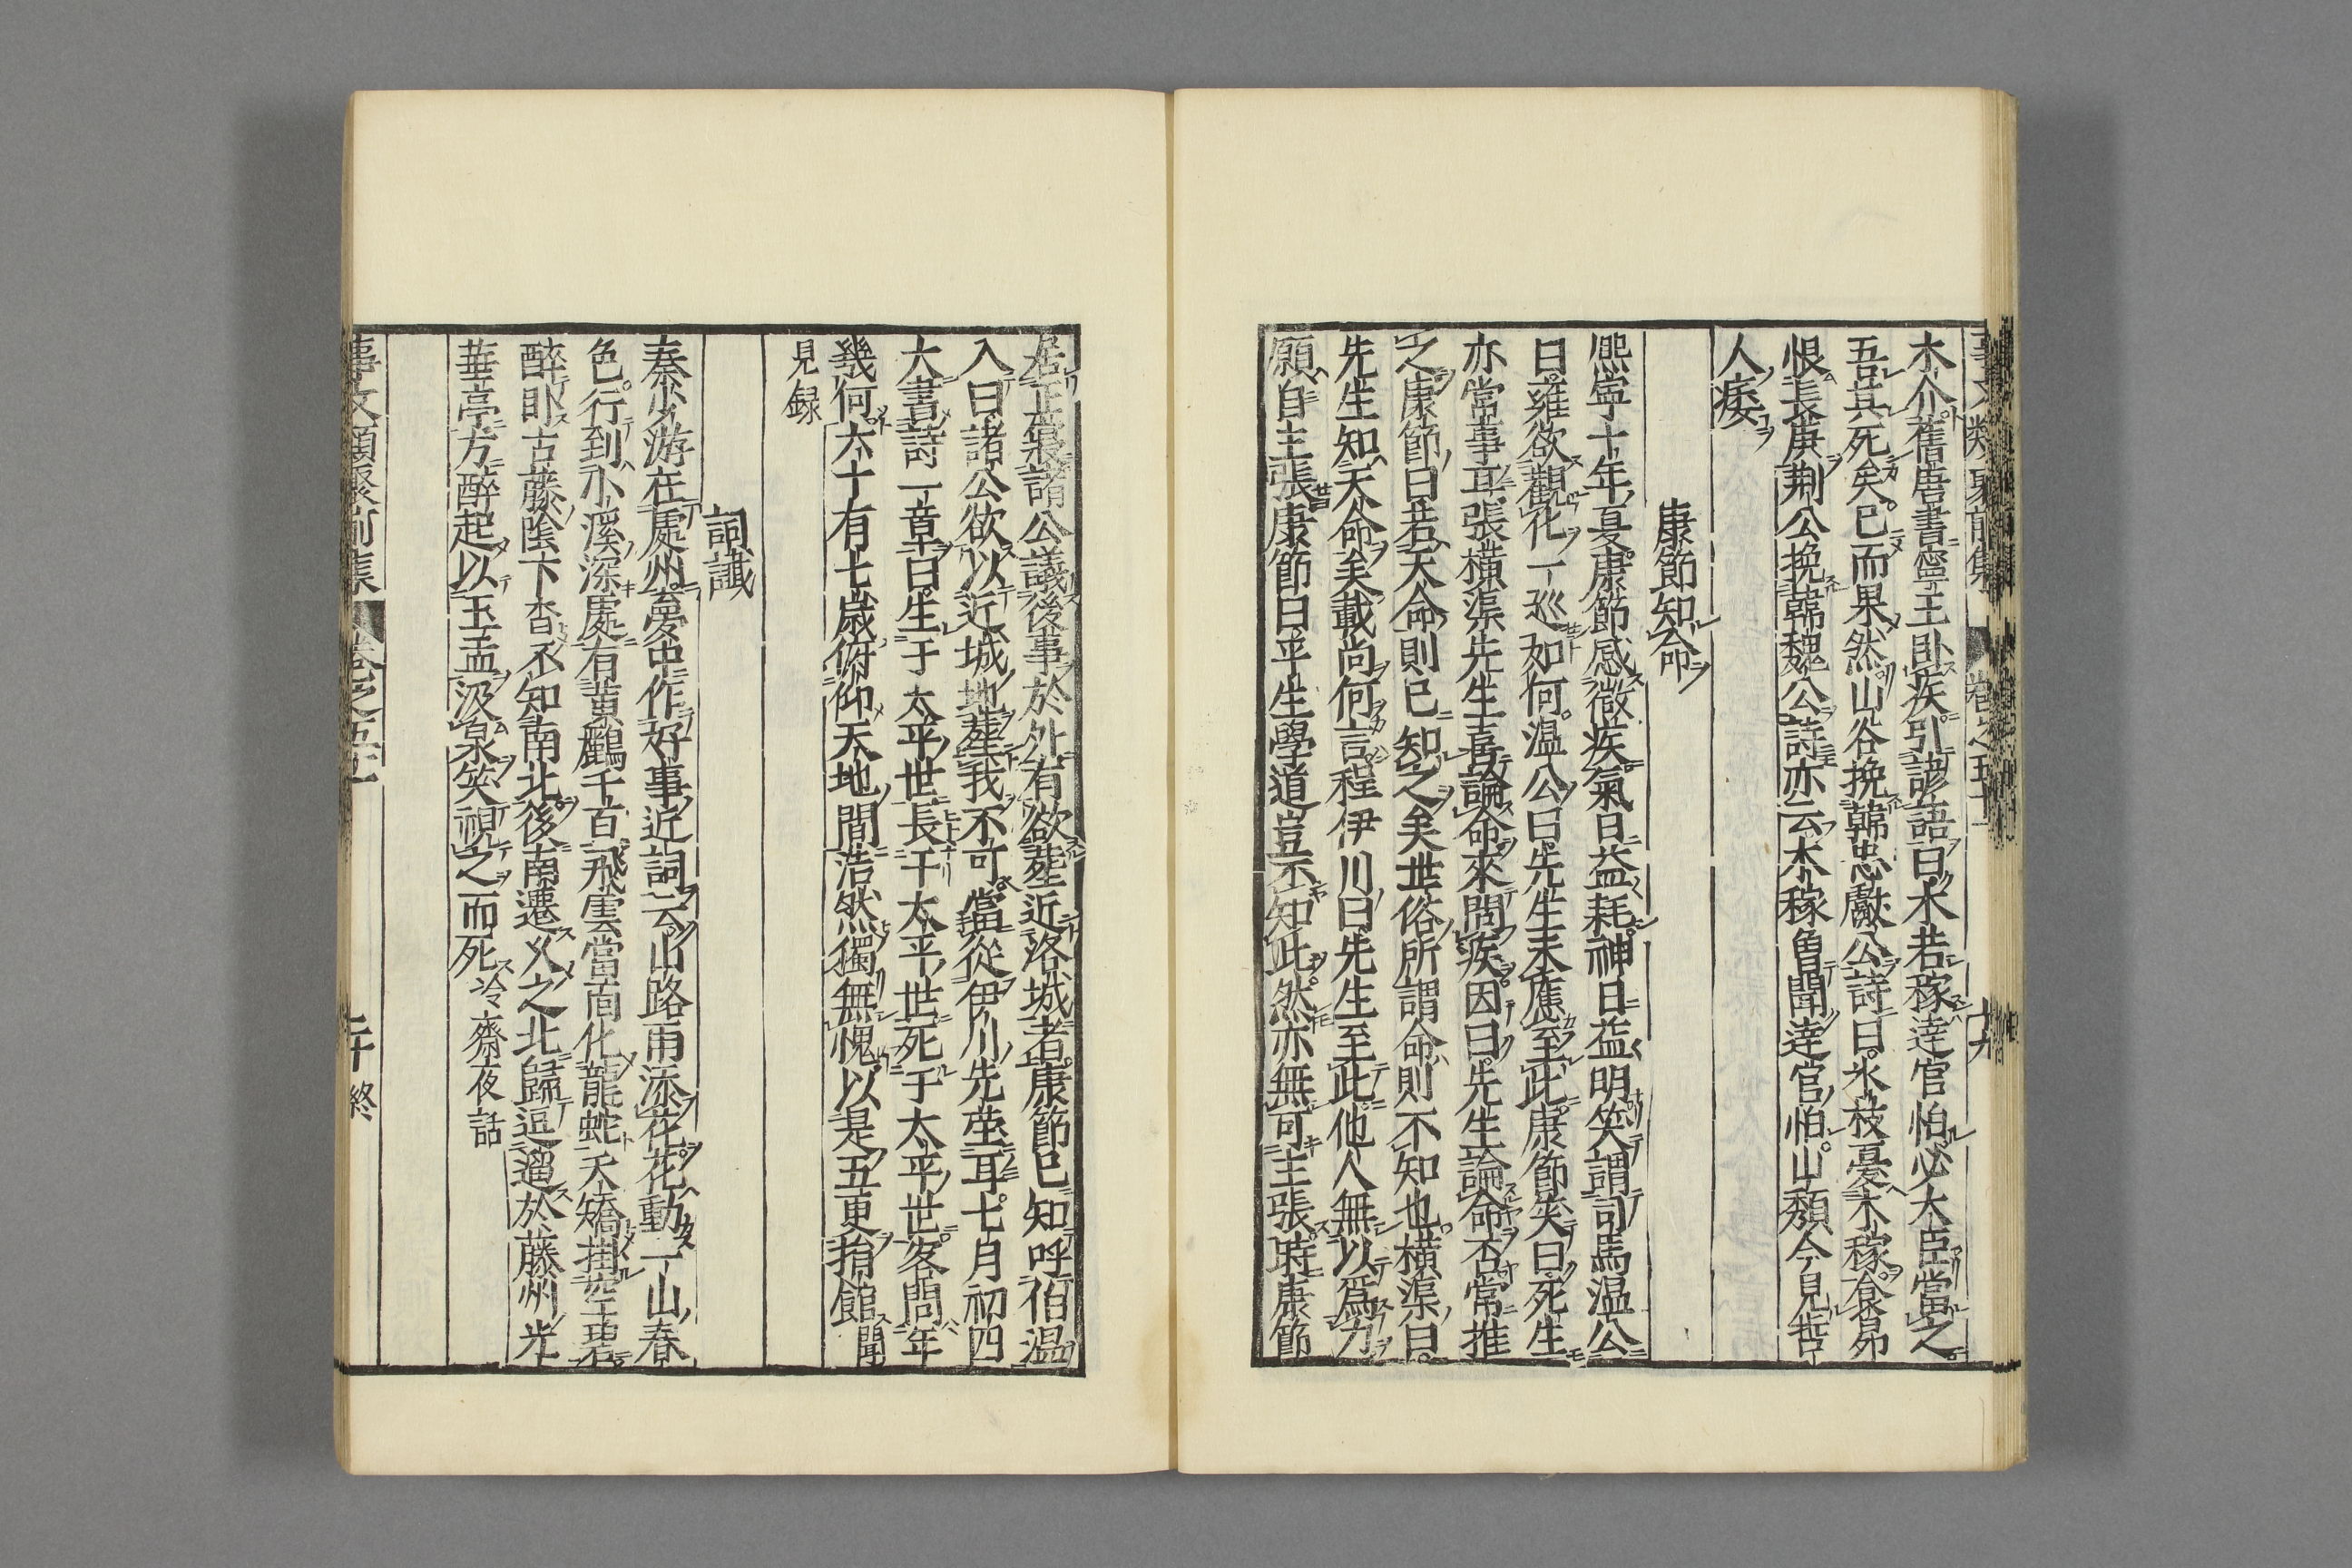 事文類聚前集 卷之五十 十九
木介舊唐書寧王臥疾引諺語曰木若稼達官怕必大臣當之
吾其死矣已而果然山谷挽韓忠獻公詩曰氷枝憂木稼食昴
恨長庚荆公挽韓魏公詩亦云木稼曾聞達官怕山頽今見哲
人痿
康節知命
熈寧十年夏康節感微疾氣日益耗神日益明笑謂司馬温公
曰雍欲觀化一巡如何温公曰先生未應至此康節笑曰死生
亦常事耳張横渠先生喜論命來問疾因曰先生論命否當推
之康節曰若天命則已知之矣世俗所謂命則不知也横渠曰
先生知天命矣載尚何言程伊川曰先生至此他人無以爲力
願自主張康節曰平生學道豈不知此然亦無可主張時康節
居正寢諸公議後事於外有欲塟近洛城者康節已知呼伯温
入曰諸公欲以近城地塟我不可當從伊川先塋耳七月初四
大書詩一章曰生于太平世長于太平世死于太平世客問年
幾何六十有七歳俯仰天地間浩然獨無愧以是五更捐館聞
見録
詞讖
秦少游在處州夢中作好事近詞云山路雨添花花動一山春
色行到小溪深處有黄鸝千百飛雲當面化龍蛇夭矯掛空碧
醉卧古藤陰下杳不知南北後南遷久之北歸逗遛於藤州光
華亭方醉起以玉盂汲泉笑視之而死冷齋夜話
事文類聚前集 卷之五十 二十終